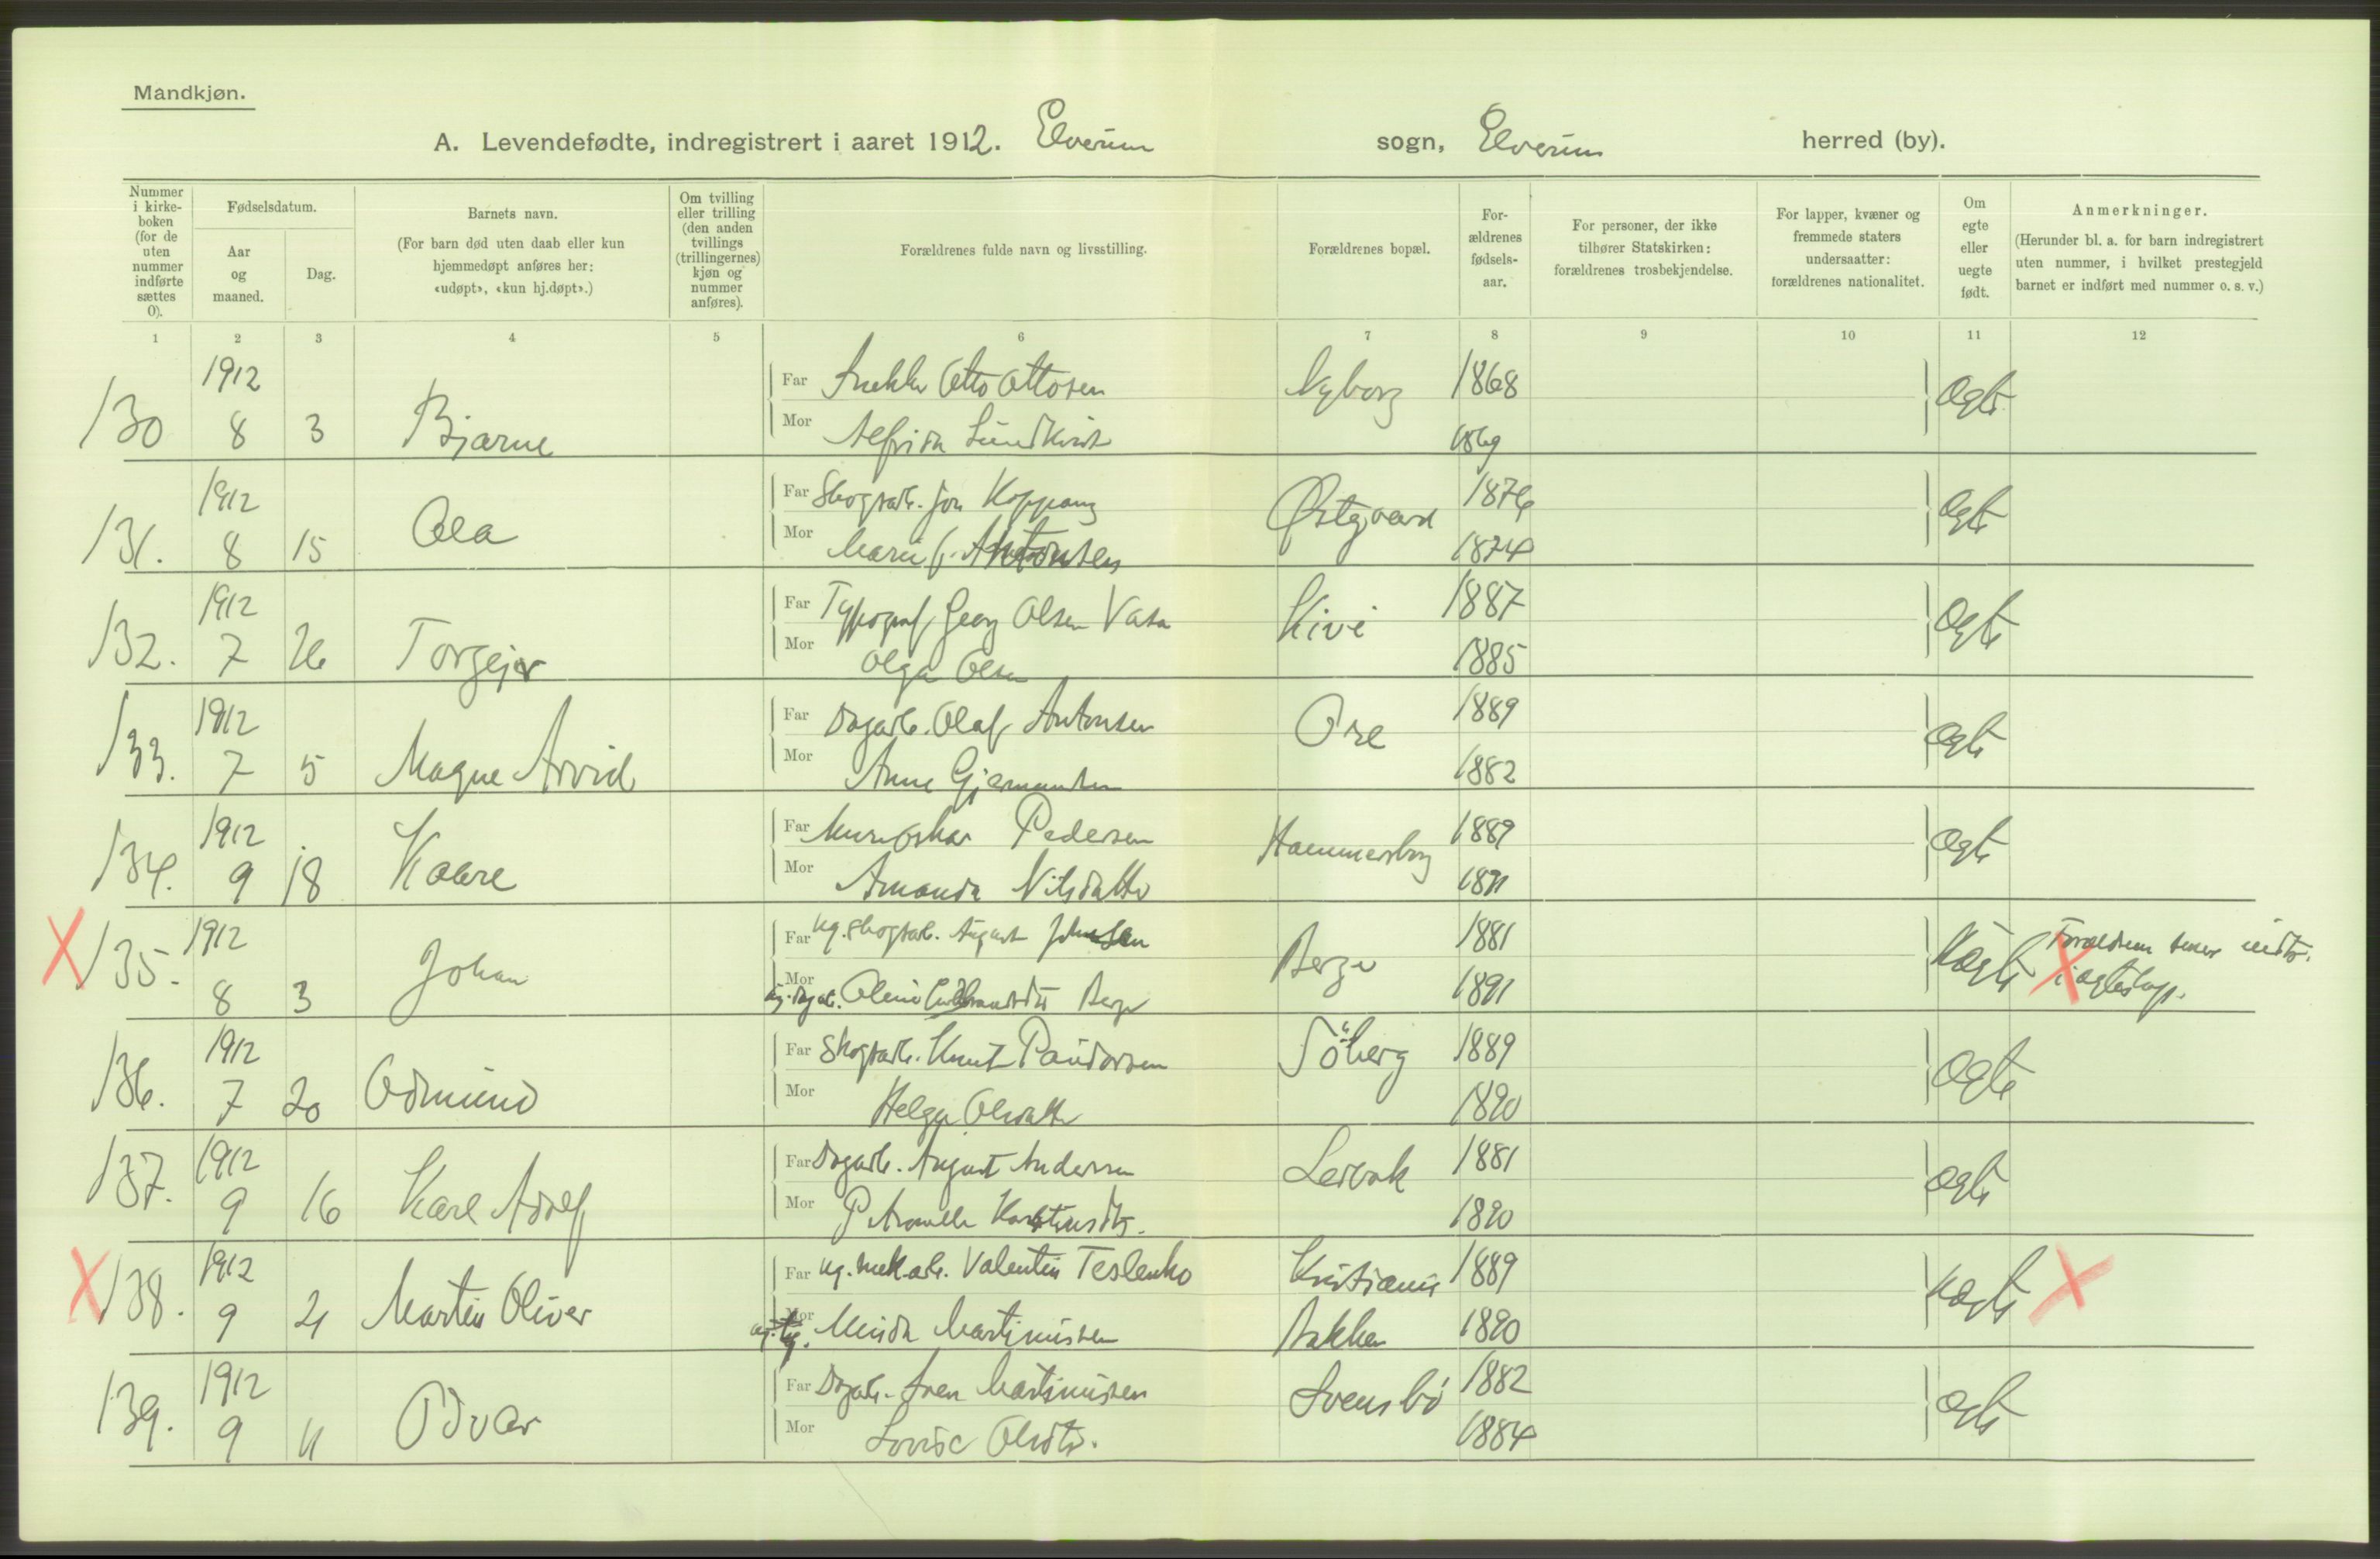 Mandkjøn.
A. Levendefødte, indregistrert i aaret 1912. Elverum sogn, Elverum herred (by).
Nummer i kirke-boken (for de uten nummer indførte sættes 0).
Fødselsdatum.
Aar og maaned.
Dag.
Barnets navn.
(For barn død uten daab eller kun hjemmedøpt anføres her: «udøpt», «kun hj.døpt».)
Om tvilling eller trilling (den anden tvillings (trillingernes) kjøn og nummer anføres).
Forældrenes fulde navn og livsstilling.
Forældrenes bopæl.
For-ældrenes fødsels-aar.
For personer, der ikke tilhører Statskirken: forældrenes trosbekjendelse.
For lapper, kvæner og fremmede staters undersaatter: forældrenes nationalitet.
Om egte eller uegte født.
Anmerkninger.
(Herunder bl. a. for barn indregistrert uten nummer, i hvilket prestegjeld barnet er indført med nummer o. s. v.)
1 2 3 4 5 6 7 8 9 10 11 12
130 1912 8 3 Bjarne Far Otto Ottosen Nyborg 1868 ægte
Mor Alfrida Lundkvist 1869
131. 1912 8 15 Ola Far Skogsarb. Jon Koppang Østgaard 1876 ægte
Mor Marie J. Antonsen 1874
132. 1912 7 26 Torgejr Far Typograf Georg Olsen Vasa Kivi 1887 ægte
Mor Olga Olsen 1885
133. 1912 7 5 Magne Arvid Far Dagarb. Olaf Antonsen 1889 ægte
Mor Anne 1882
134. 1912 9 18 Kaare Far Murer Oskar Pedersen Hammersberg 1889 ægte
Mor Amanda Nilsdatter 1891
X 135. 1912 8 3 Johan Far ug. skogsarb. August Johnsen Berger 1881 uægte X Forældrene senere indtr.
Mor Oline 1891 i ægteskap.
136. 1912 7 20 Odmund Far Skogsarb. Knut Paudersen Söberg 1889 ægte
Mor Helga Olsdatter 1890
137. 1912 9 16 Karl Adolf Far Dagarb. August Andersen 1881 ægte
Mor Petronelle 1890
X 138. 1912 9 21 Martin Oliver Far ug. mek.arb. Valentin Teslenko Kristiania 1889 uægte X
Mor ug. Minda Martinussen Bakken 1890
139. 1912 9 11 Odvar Far Dagarb. Martinussen Svensbö 1882 ægte
Mor Lovise Olsdtr. 1884